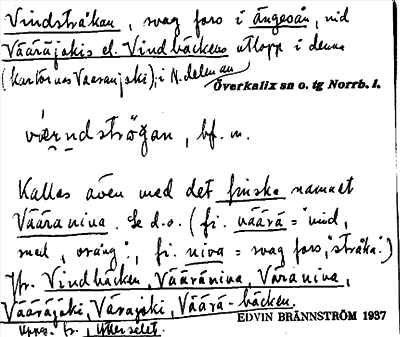 Vindstråkan, svag fors i ängesån, vid
Vääräjokis el. Vindbäckens utlopp i denna
(kartornas Vaaranjoki); i N. delen av
Överkalix sn o. tg Norrb. l.
vörndströ̀gan, bf. m.
Kallas även med det finska namnet
Vääränina. Se d.o. (fi. väärä = "vind,
sned, vrång", fi. niva = svag fors, "stråka".)
Jfr. Vindbäcken, Vääräniva, Väraniva,
Vääräjoki, Värajoki, Väärä-bäcken.
Uppg. fr. Ytterselet.
EDVIN BRÄNNSTRÖM 1937